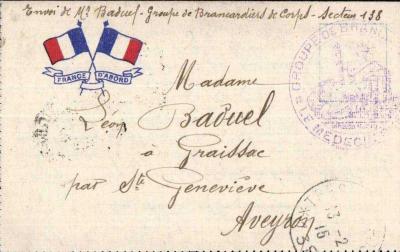 Envoi de Mr Baduel - Groupe de Brancardiers de Corps - Secteur 138
FRANCE D'ABORD
GROUPE DE BRAN
LE MEDECIN
Madame
Léon Baduel
à Graissac
par Ste Geneviève
Aveyron
13-2
15